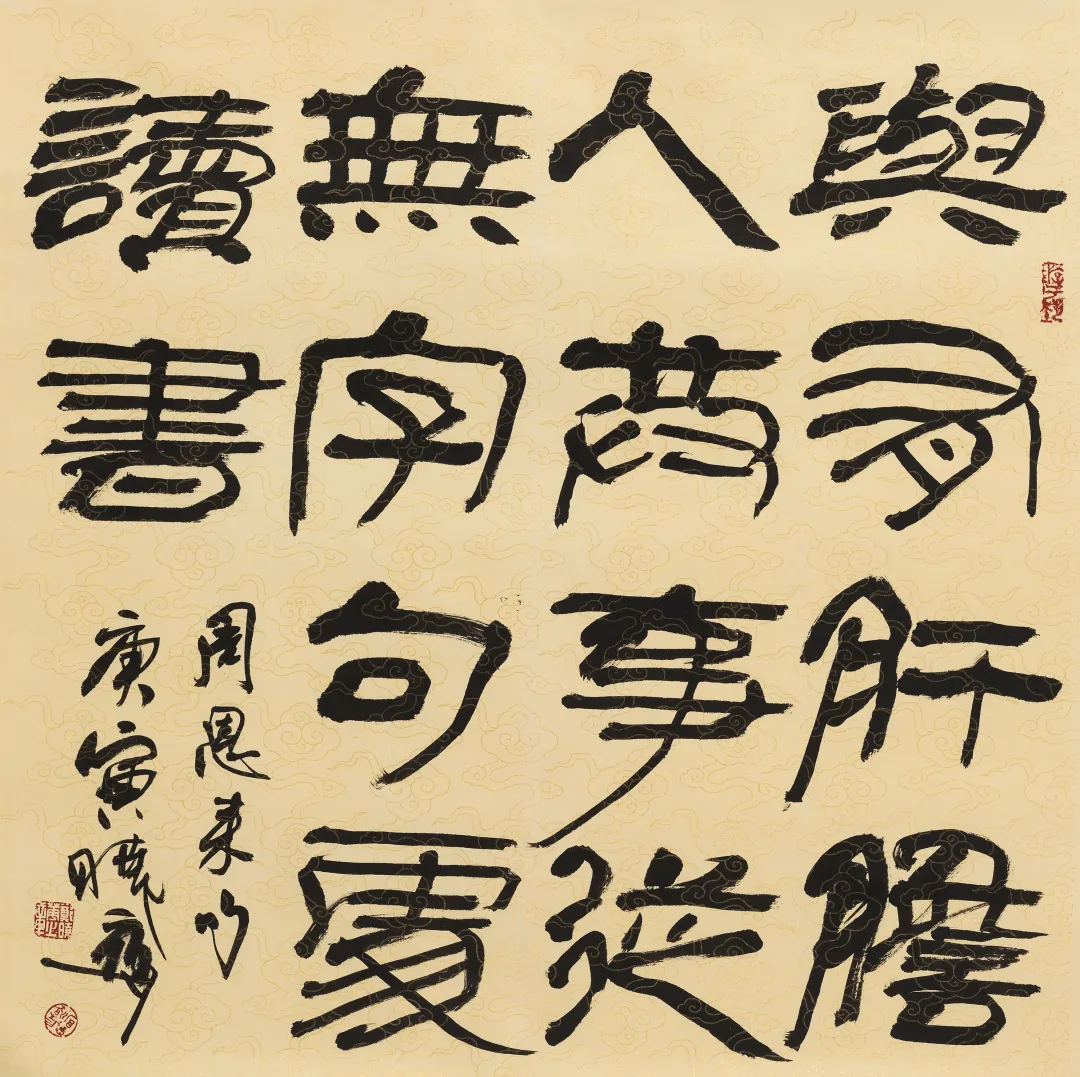 與有肝膽
人共事從
無字句處
讀書
周恩来句
庚寅曉華